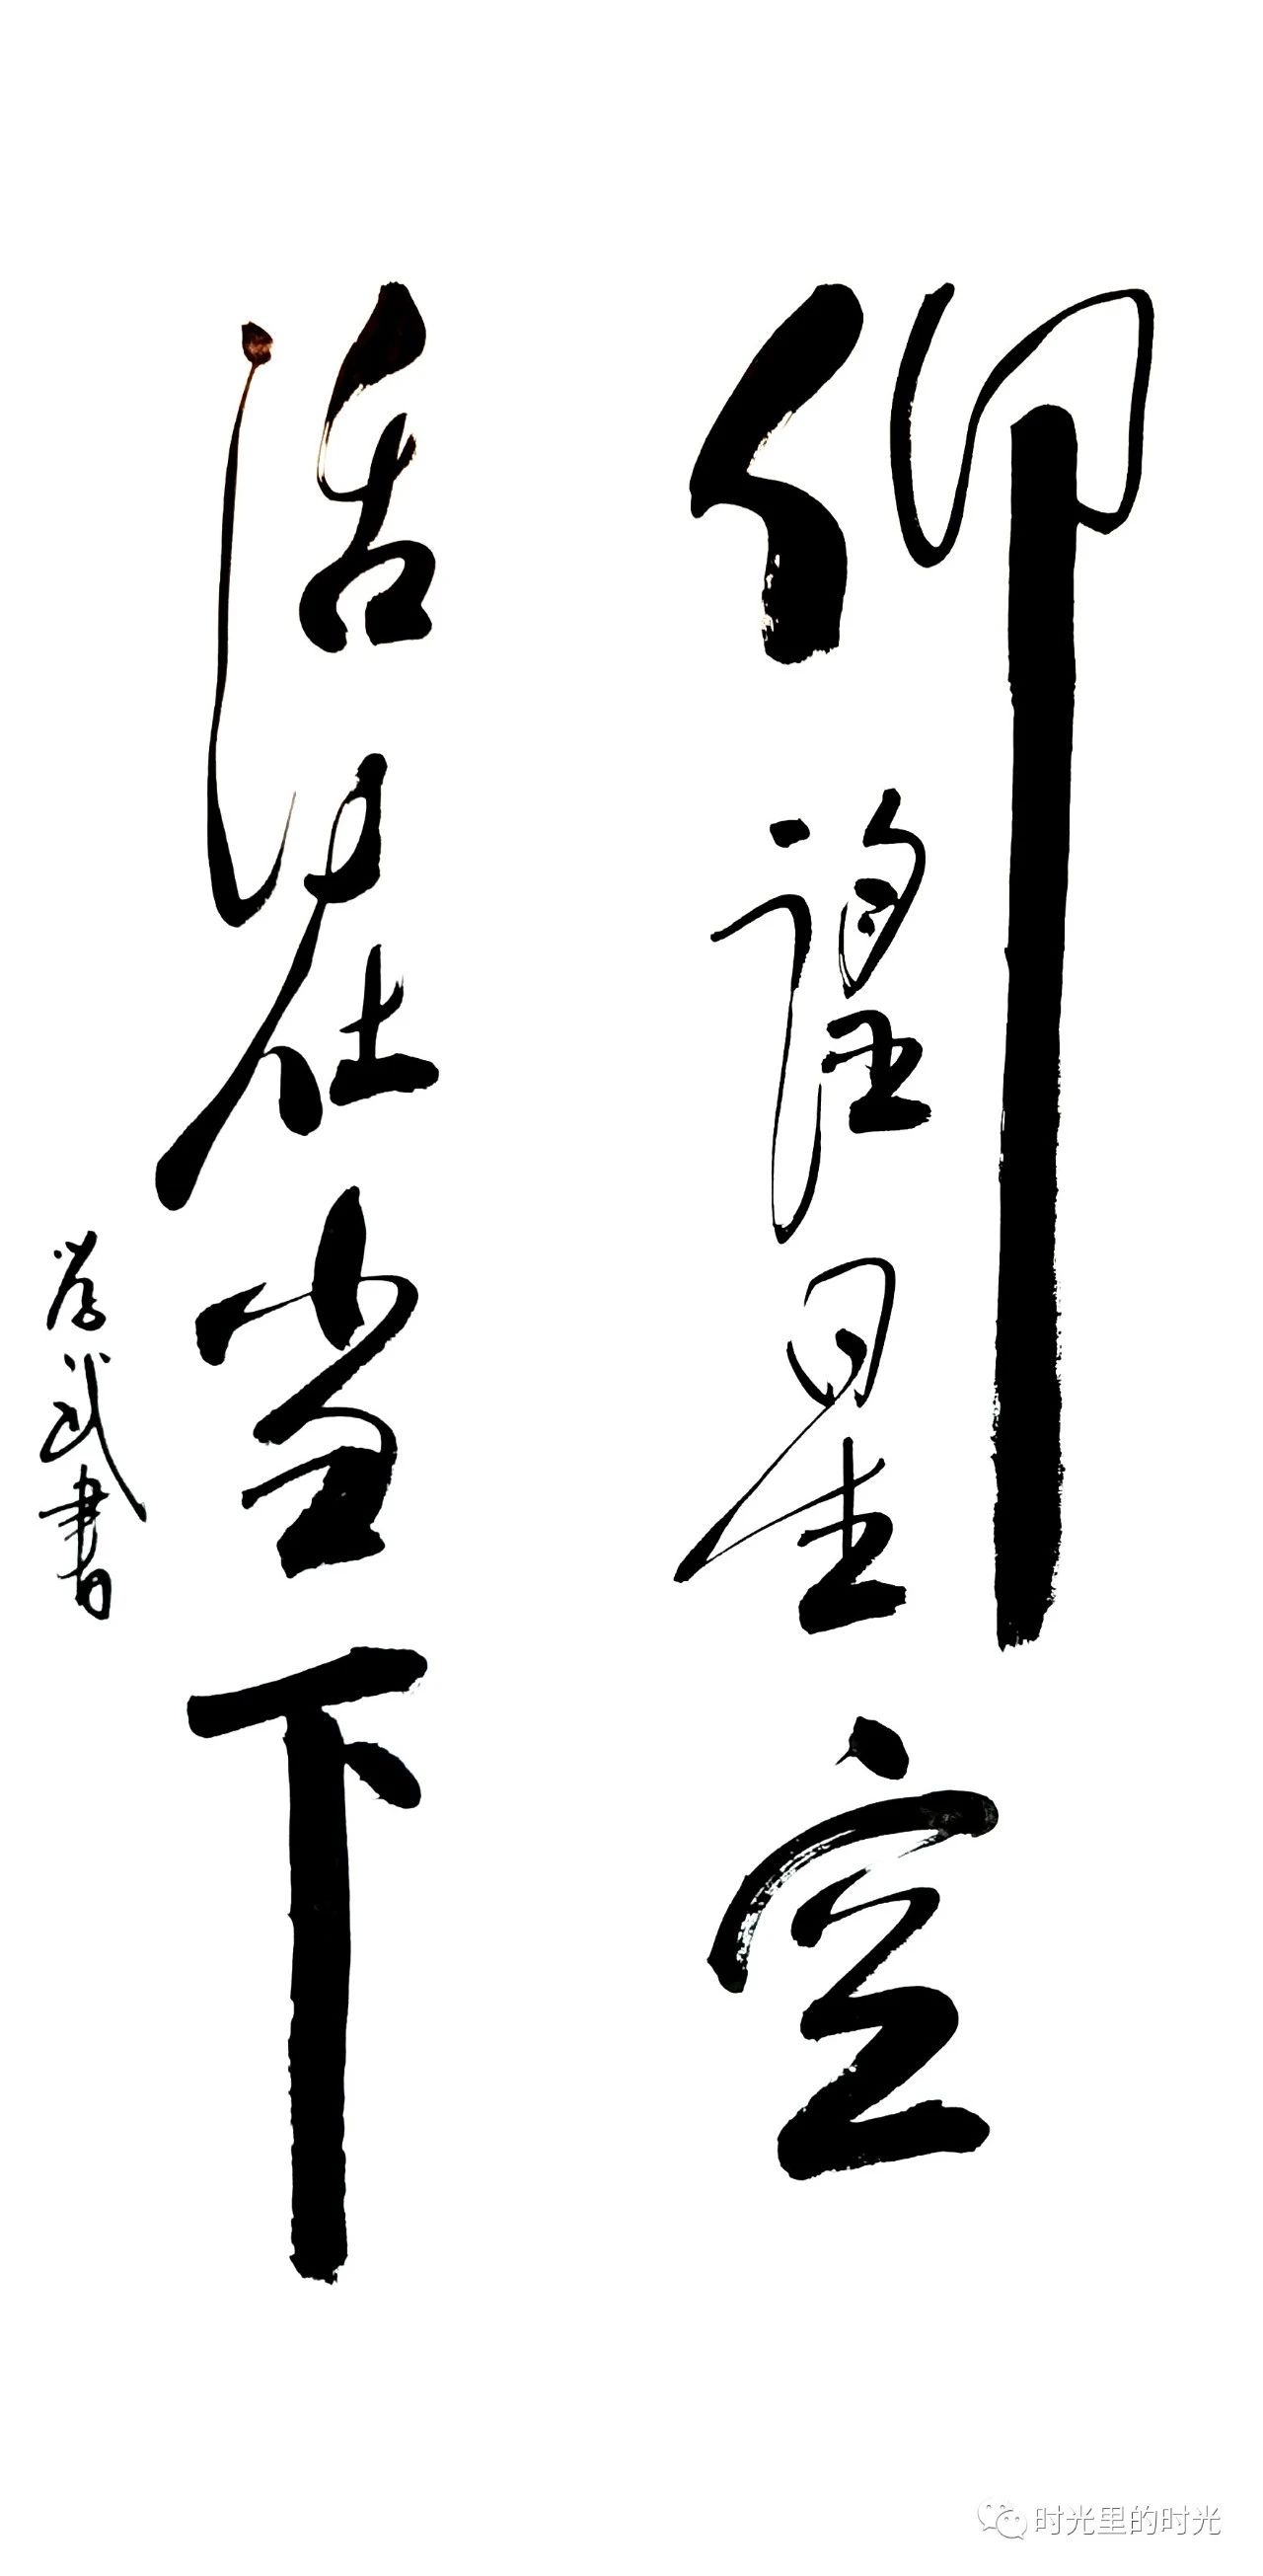 仰望星空
活在当下
学武書
时光里的时光